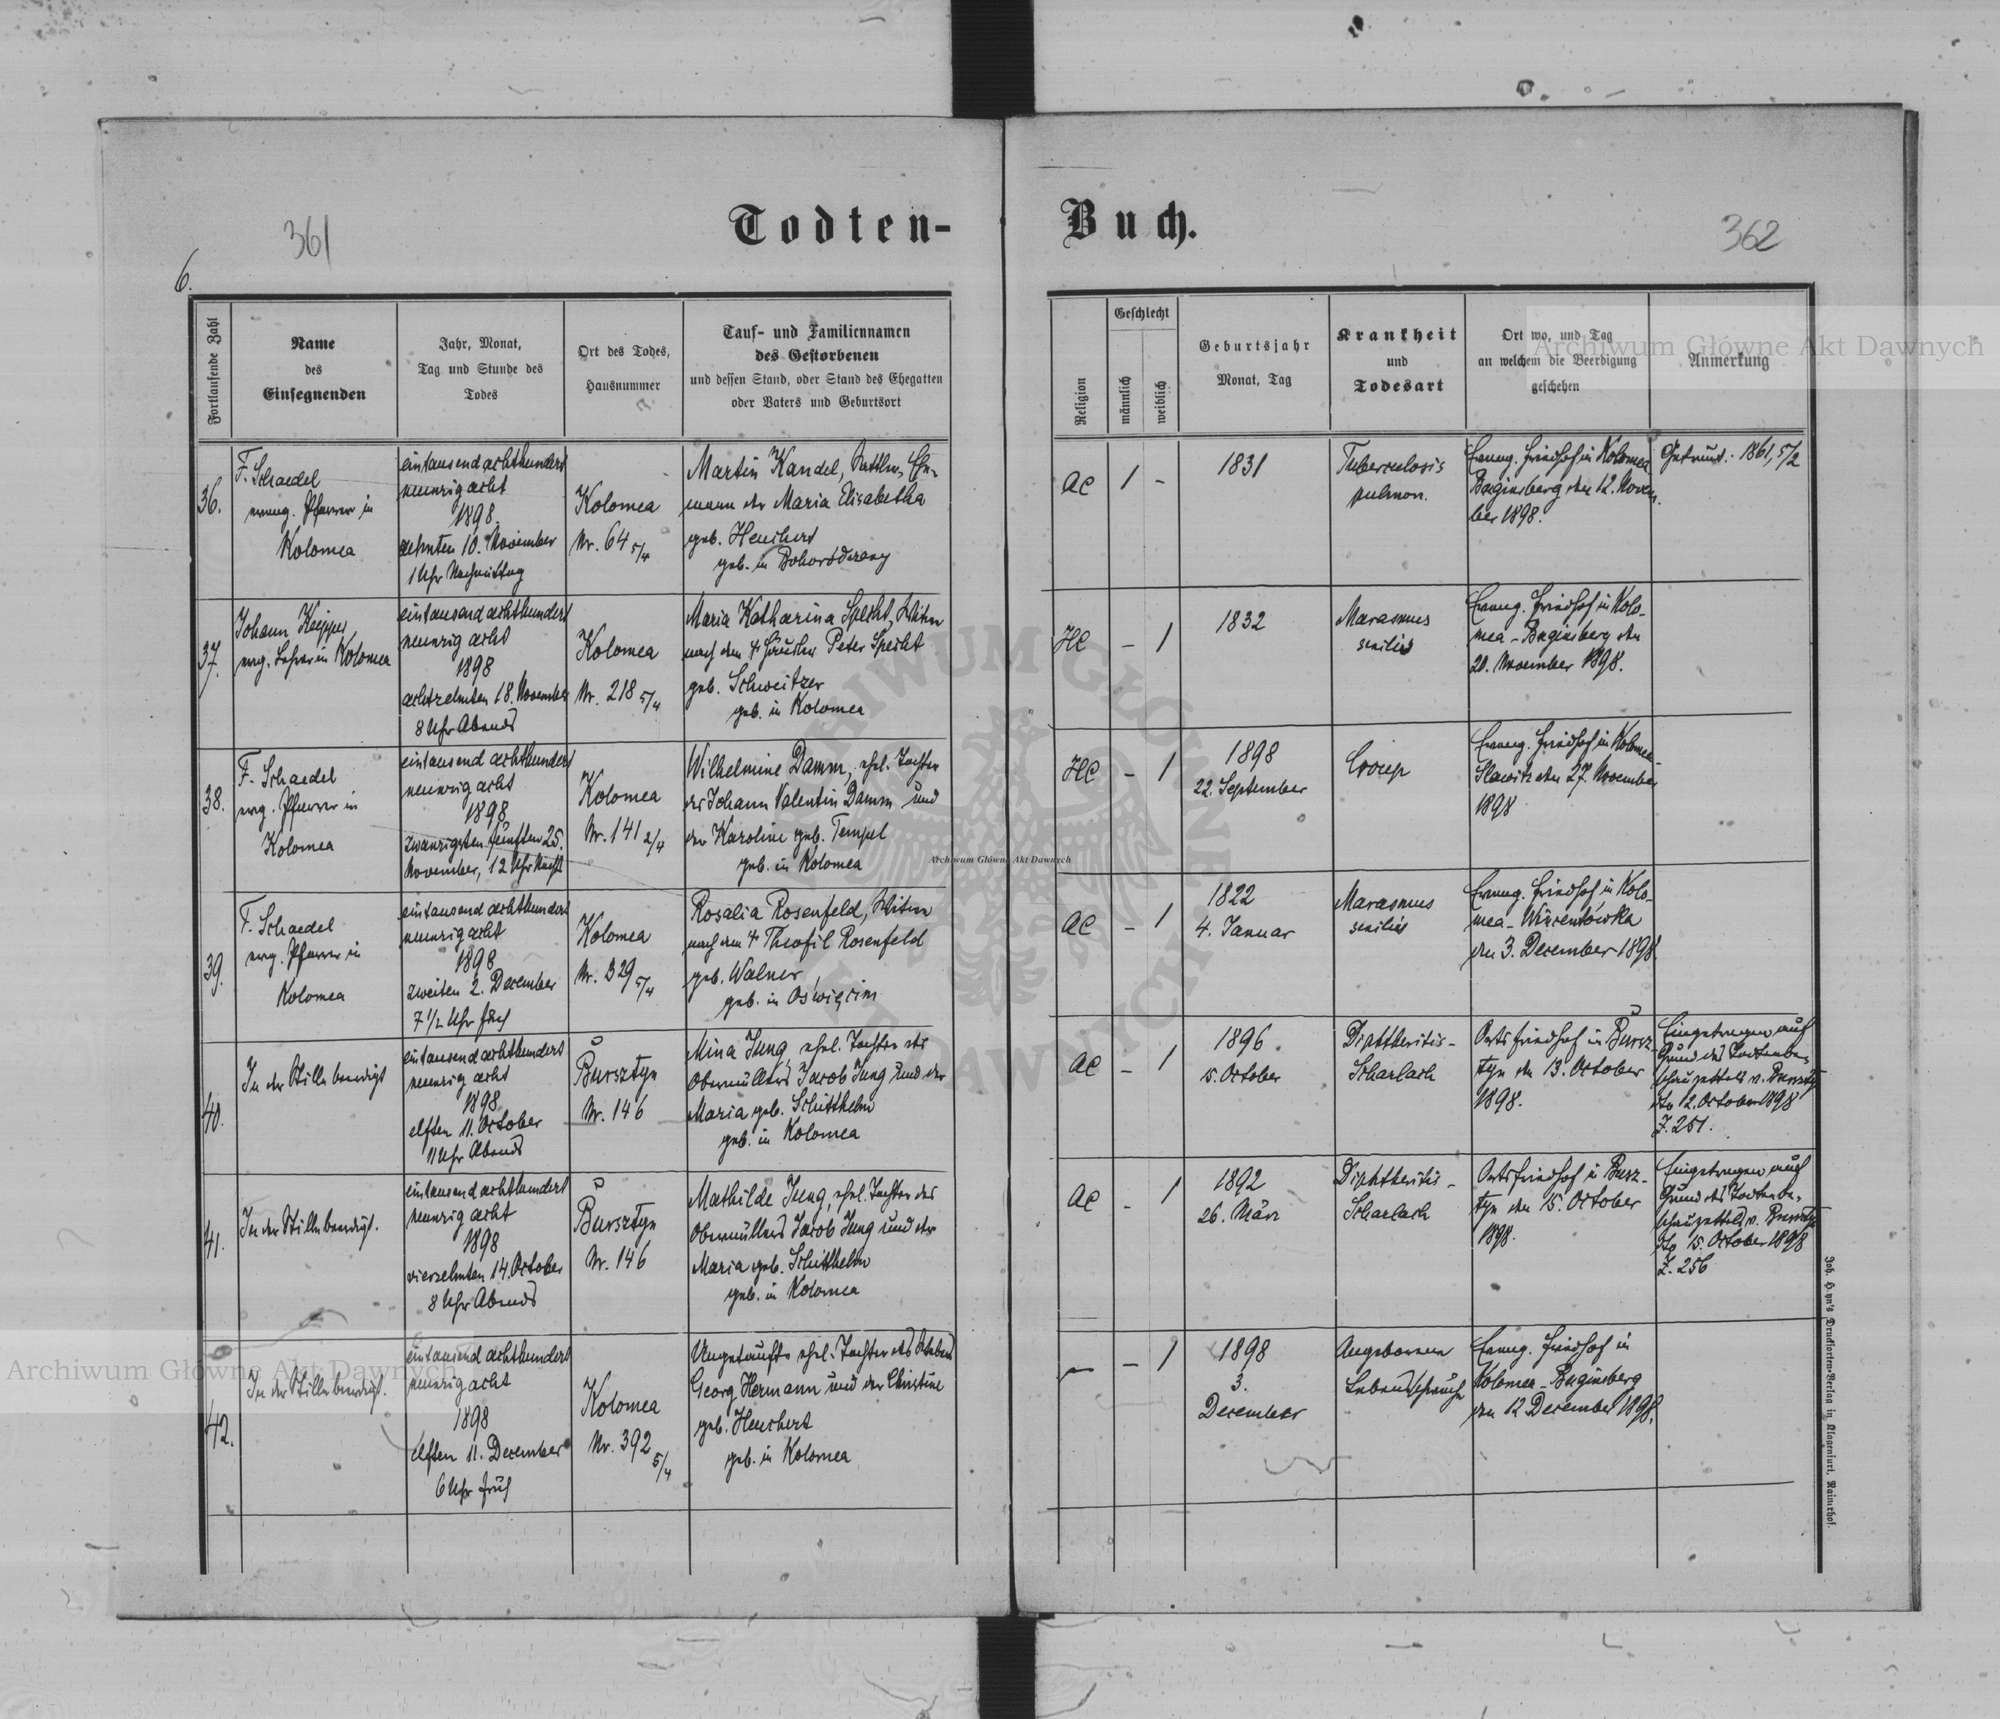 361
Todten-
Buch.
362
6.
Fortlaufende Zahl
Name
des
Einsegnenden
Jahr, Monat,
Tag und Stunde des
Todes
Ort des Todes,
Hausnummer
Tauf- und Familiennamen
des Gestorbenen
und dessen Stand, oder Stand des Ehegatten
oder Vaters und Geburtsort
Religion
Geschlecht
männlich
weiblich
Geburtsjahr
Monat, Tag
Krankheit
und
Todesart
Ort wo, und Tag
an welchem die Beerdigung
geschehen
Anmerkung
36.
F. Schaedel
evang. Pfarrer in
Kolomea
eintausend achthundert
neunzig acht
1898
zehnten 10. November
1 Uhr Nachmittag
Kolomea
Nr. 64 5/4
Martin Kandel, Sattler, Ehe-
mann der Maria Elisabetha
geb. Heuchert
geb. in Bohorodczany
AC
1
-
1831
Tuberculosis
pulmon.
Evang. Friedhof in Kolomea
Baginsberg den 12. Novem-
ber 1898.
Getraut: 1861, 5/2
37.
Johann Keipper
evg. Lehrer in Kolomea
eintausend achthundert
neunzig acht
1898
achtzehnten 18. November
8 Uhr Abends
Kolomea
Nr. 218 5/4
Maria Katharina Specht, Witwe
nach dem † Häusler Peter Specht
geb. Schweitzer
geb. in Kolomea
HC
-
1
1832
Marasmus
senilis
Evang. Friedhof in Kolo-
mea - Baginsberg den
20. November 1898.
38.
F. Schaedel
evg. Pfarrer in
Kolomea
eintausend achthundert
neunzig acht
1898
zwanzigsten fünften 25.
November, 12 Uhr Nachts
Kolomea
Nr. 141 2/4
Wilhelmine Damm, ehel. Tochter
des Johann Valentin Damm und
der Karoline geb. Tempel
geb. in Kolomea
HC
-
1
1898
22. September
Croup
Evang. Friedhof in Kolomea-
Slawitz den 27. November
1898
39.
F. Schaedel
evg. Pfarrer in
Kolomea
eintausend achthundert
neunzig acht
1898
zweiten 2. December
7 1/2 Uhr früh
Kolomea
Nr. 329 5/4
Rosalia Rosenfeld, Witwe
nach dem † Theofil Rosenfeld
geb. Walner
geb. in Oświęcim
AC
-
1
1822
4. Januar
Marasmus
senilis
Evang. Friedhof in Kolo-
mea - Wincentówka
den 3. December 1898.
40.
In der Stille beerdigt
eintausend achthundert
neunzig acht
1898
elften 11. October
11 Uhr Abends
Bursztyn
Nr. 146
Mina Jung, ehel. Tochter des
Obermüllers Jacob Jung und der
Maria geb. Schitthelm
geb. in Kolomea
AC
-
1
1896
15. October
Diphtheritis-
Scharlach
Ortsfriedhof in Bursz-
tyn den 13. October
1898.
Eingetragen auf
Grund des Todtenbe-
schauzettels v. Bursztyn
dto 12. October 1898
Z. 251.
41.
In der Stille beerdigt.
eintausend achthundert
neunzig acht
1898
vierzehnten 14. October
8 Uhr Abends
Bursztyn
Nr. 146
Mathilde Jung, ehel. Tochter des
Obermüllers Jacob Jung und der
Maria geb. Schitthelm
geb. in Kolomea
AC
-
1
1892
26. März
Diphtheritis-
Scharlach
Ortsfriedhof in Bursz-
tyn den 15. October
1898.
Eingetragen auf
Grund des Todtenbe-
schauzettels v. Bursztyn
dto 15. October 1898
Z. 256
42.
In der Stille beerdigt.
eintausend achthundert
neunzig acht
1898
elften 11. December
6 Uhr früh
Kolomea
Nr. 392 5/4
Ungetaufte ehel. Tochter des
Georg Hermann und der Christine
geb. Heuchert
geb. in Kolomea
-
-
1
1898
3.
December
Angeborene
Lebensschwäche
Evang. Friedhof in
Kolomea - Baginsberg
den 12 December 1898.
Joh. Heyn's Drucksorten-Verlag in Klagenfurt, Rainerhof.
Archiwum Główne Akt Dawnych
Archiwum Główne Akt Dawnych
Archiwum Główne Akt Dawnych
ARCHIWUM GŁÓWNE AKT DAWNYCH